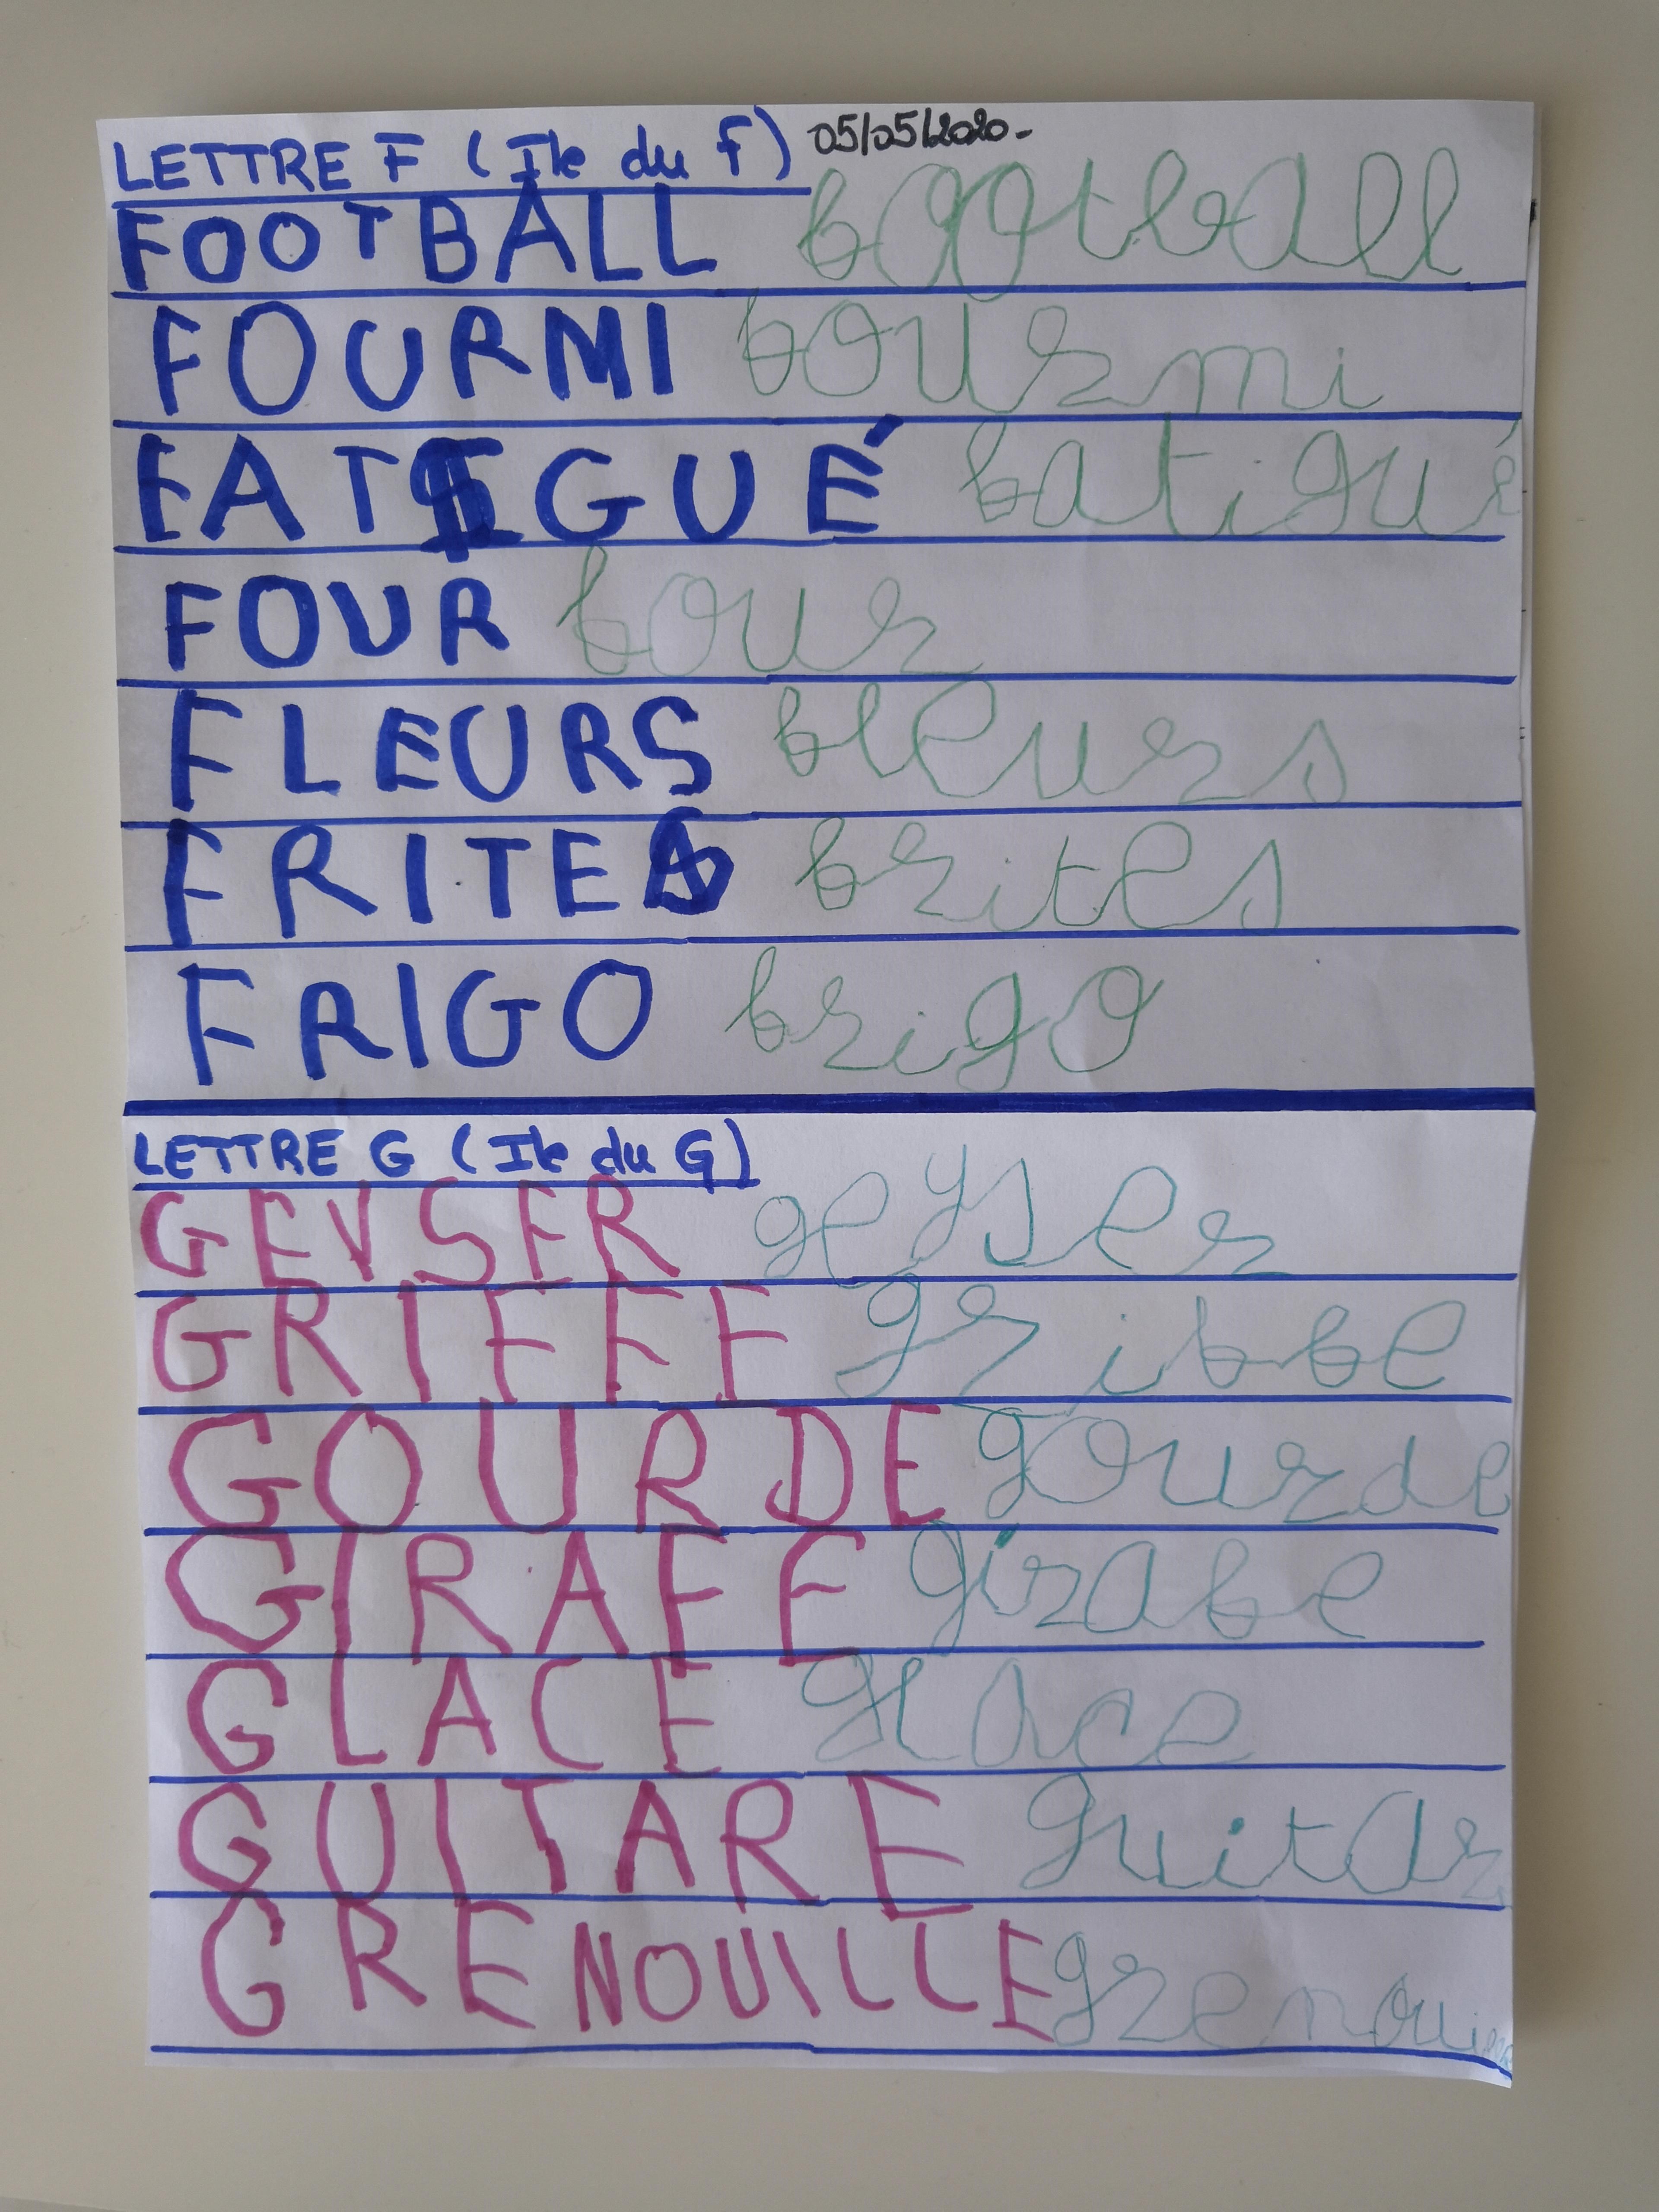 LETTRE F (Ile du f) 05/05/2020-
FOOTBALL football
FOURMI fourmi
FATIGUÉ fatigué
FOUR four
FLEURS fleurs
FRITES frites
FRIGO frigo
LETTRE G (Ile du G)
GEYSER geyser
GRIFFE griffe
GOURDE gourde
GIRAFE girafe
GLACE glace
GUITARE guitar
GRENOUILLE grenouille